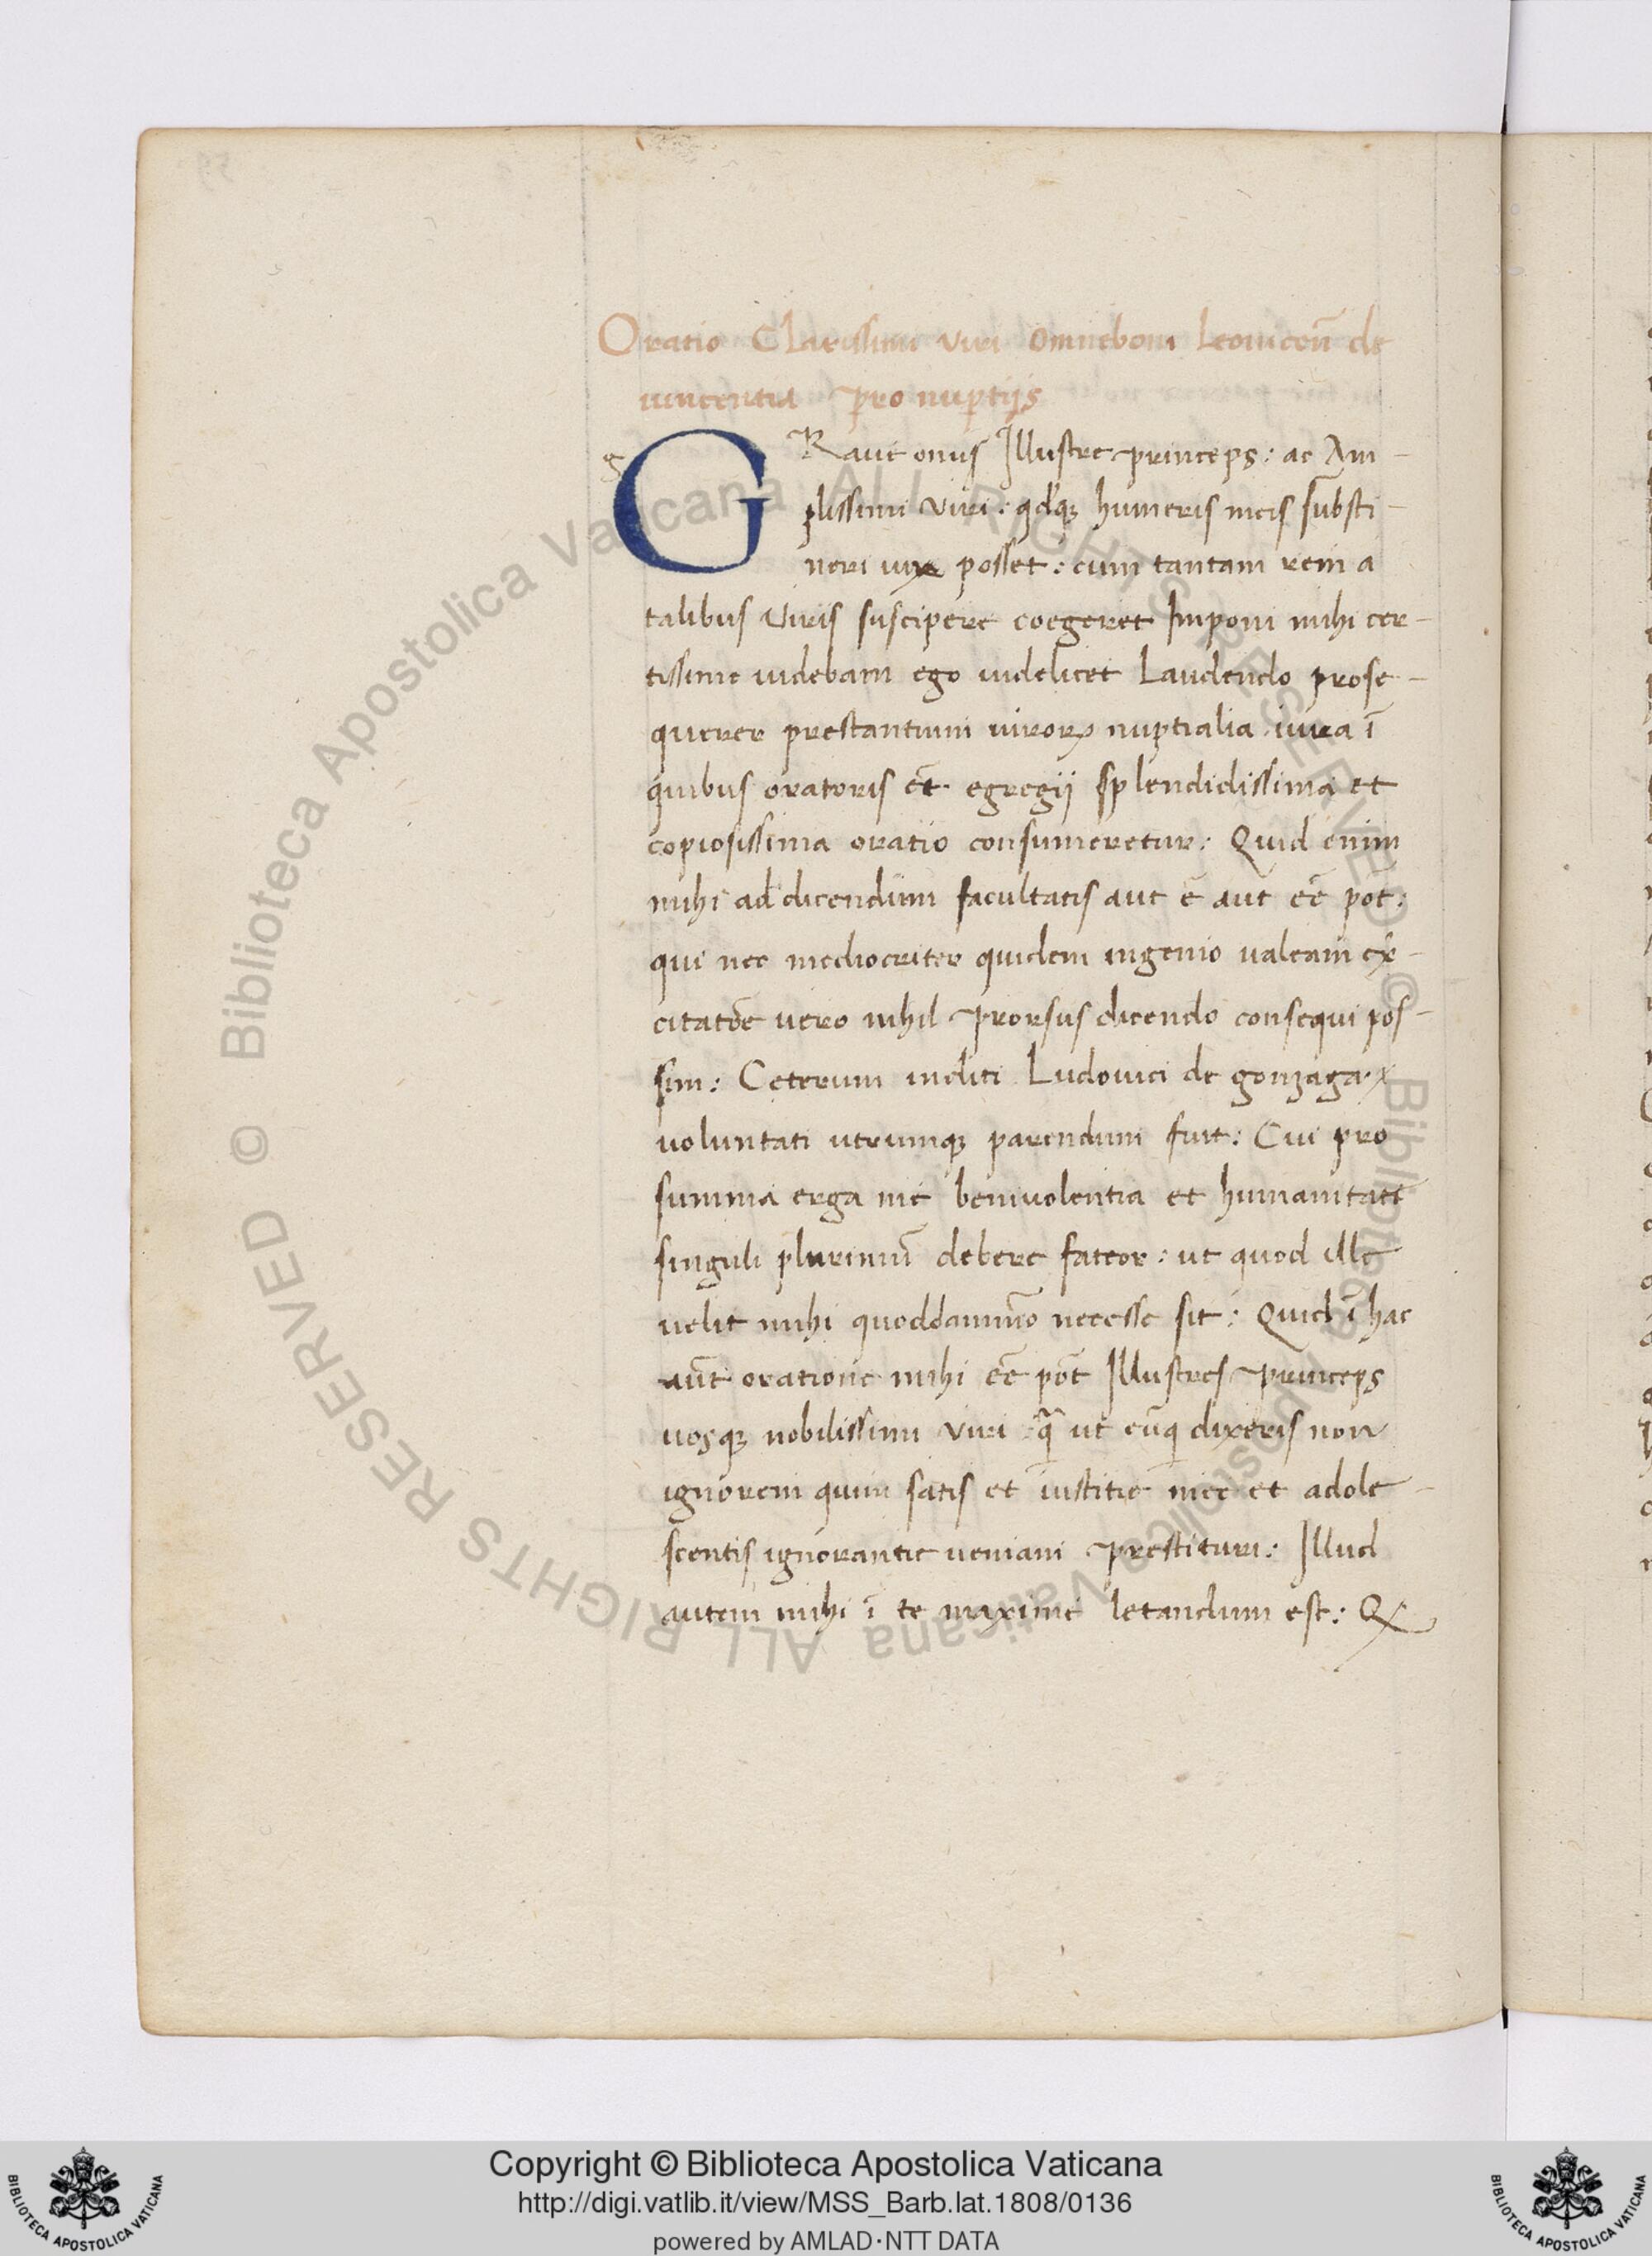 Oratio Clarissimi viri Omneboni Leonicenī de
vincentia pro nuptijs
g
GRaue onus Illustre princeps: ac Am-
plissimi viri: qdq₃ humeris meis substi-
neri vix posset: cum tantam rem a
talibus viris suscipere coegeret Imponi mihi cer-
tissime uidebam ego uidelicet Laudendo prose-
querer prestantium uiroꝝ nuptialia iura ī
quibus oratoris et̄ egregij splendidissima et
copiosissima oratio consumeretur: Quid enim
mihi ad dicendum facultatis aut ē aut eē̄ pōt:
qui nec mediocriter quidem ingenio ualeam ex-
citatōe uero nihil prorsus dicendo consequi pos-
sim: Ceterum incliti Ludouici de gonzaga
uoluntati utrumq₃ parendum fuit: Cui pro
summa erga me beniuolentia et humanitate
singuli plurimū debere fateor: ut quod ille
uelit mihi quoddammō necesse sit: Quid ī hac
aūt oratione mihi eē̄ pōt Illustres princeps
uosq₃ nobilissimi viri: q̄ ut cūq₃ dixeris non
ignorem quin satis et iustitie mee et adole-
scentis ignorantie ueniam prestituri: Illud
autem mihi ī te maxime letandum est: Q
Copyright © Biblioteca Apostolica Vaticana
http://digi.vatlib.it/view/MSS_Barb.lat.1808/0136
powered by AMLAD·NTT DATA
BIBLIOTECA APOSTOLICA VATICANA
BIBLIOTECA APOSTOLICA VATICANA
© Biblioteca Apostolica Vaticana ALL RIGHTS RESERVED © Biblioteca Apostolica Vaticana ALL RIGHTS RESERVED